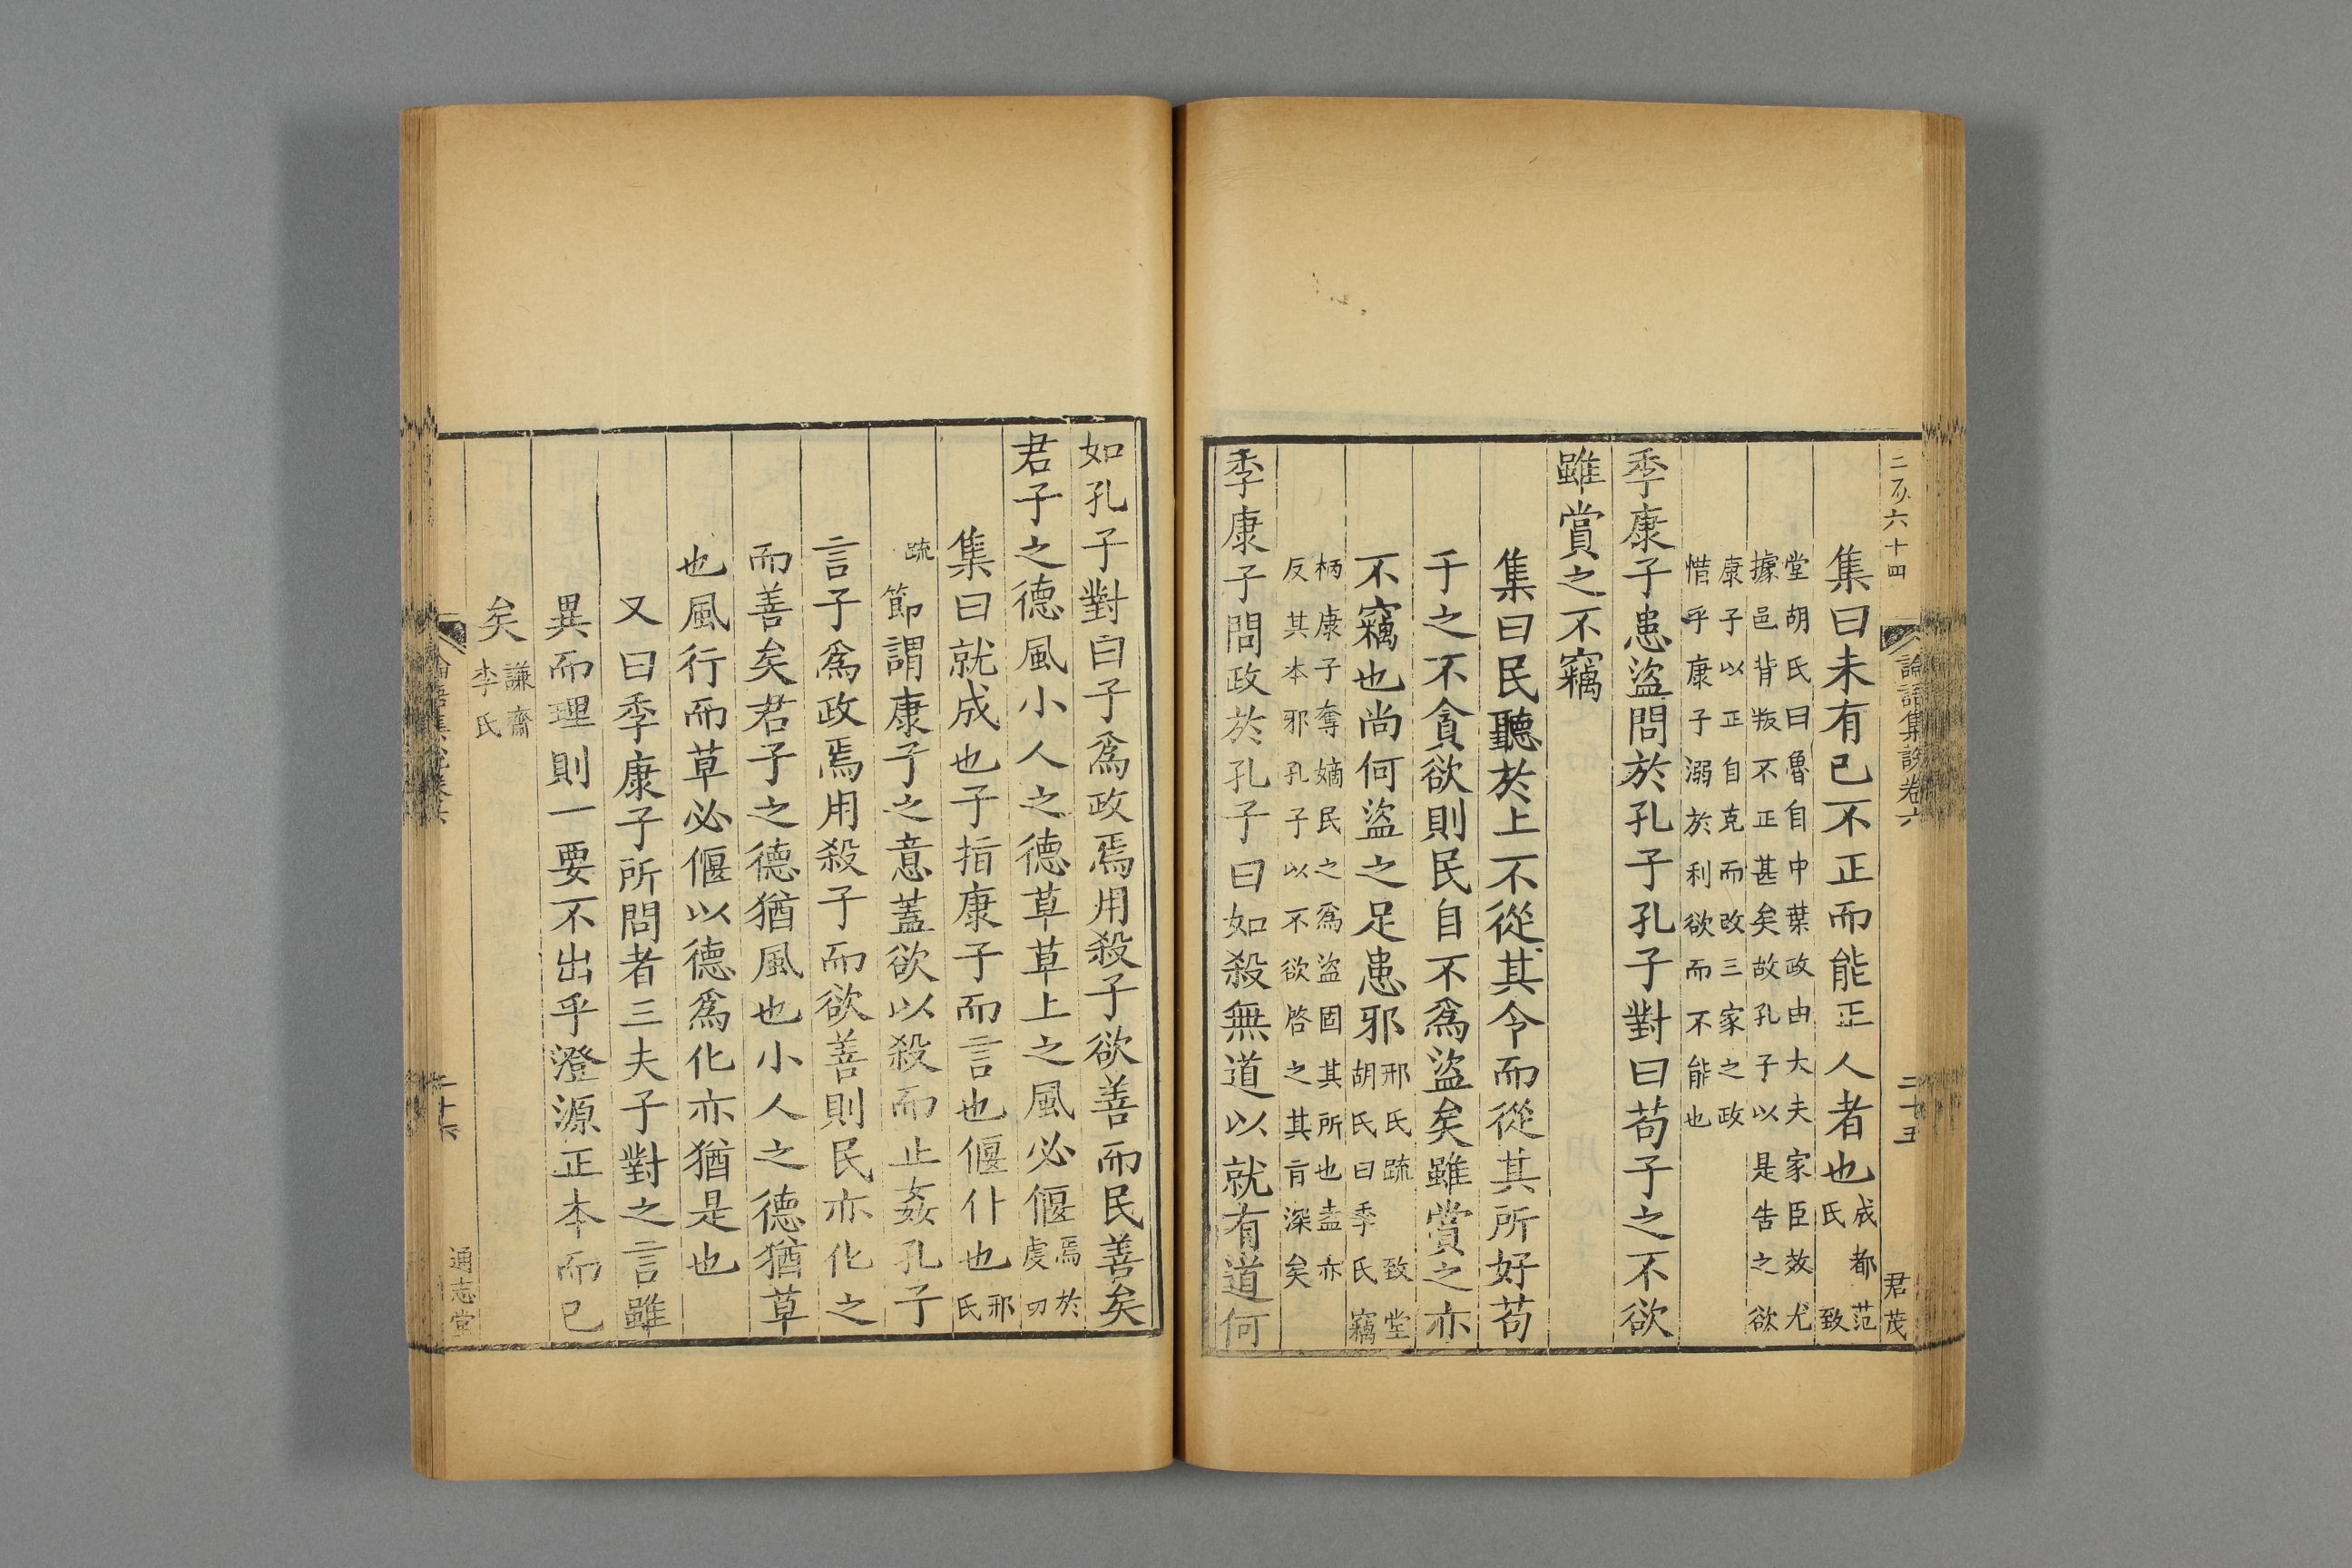 二百六十四 論語集說卷六 二十五 君茂
集曰未有己不正而能正人者也成都范氏 致
堂胡氏曰魯自中葉政由大夫家臣效尤
據邑背叛不正甚矣故孔子以是告之欲
康子以正自克而改三家之政
惜乎康子溺於利欲而不能也
季康子患盜問於孔子孔子對曰苟子之不欲
雖賞之不竊
集曰民聽於上不從其令而從其所好苟
千之不貪欲則民自不為盜矣雖賞之亦
不竊也尚何盜之足患邪邢氏疏 致堂
胡氏曰季氏竊
柄康子奪嫡民之為盜固其所也盍亦
反其本邪孔子以不欲啓之其旨深矣
季康子問政於孔子曰如殺無道以就有道何
如孔子對曰子為政焉用殺子欲善而民善矣
君子之德風小人之德草草上之風必偃焉於
虔切
集曰就成也子指康子而言也偃仆也邢氏
疏
節謂康子之意蓋欲以殺而止姦孔子
言子為政焉用殺子而欲善則民亦化之
而善矣君子之德猶風也小人之德猶草
也風行而草必偃以德為化亦猶是也
又曰季康子所問者三夫子對之言雖
異而理則一要不出乎澄源正本而已
矣謙齋
李氏
論語集說卷六 二十六 通志堂